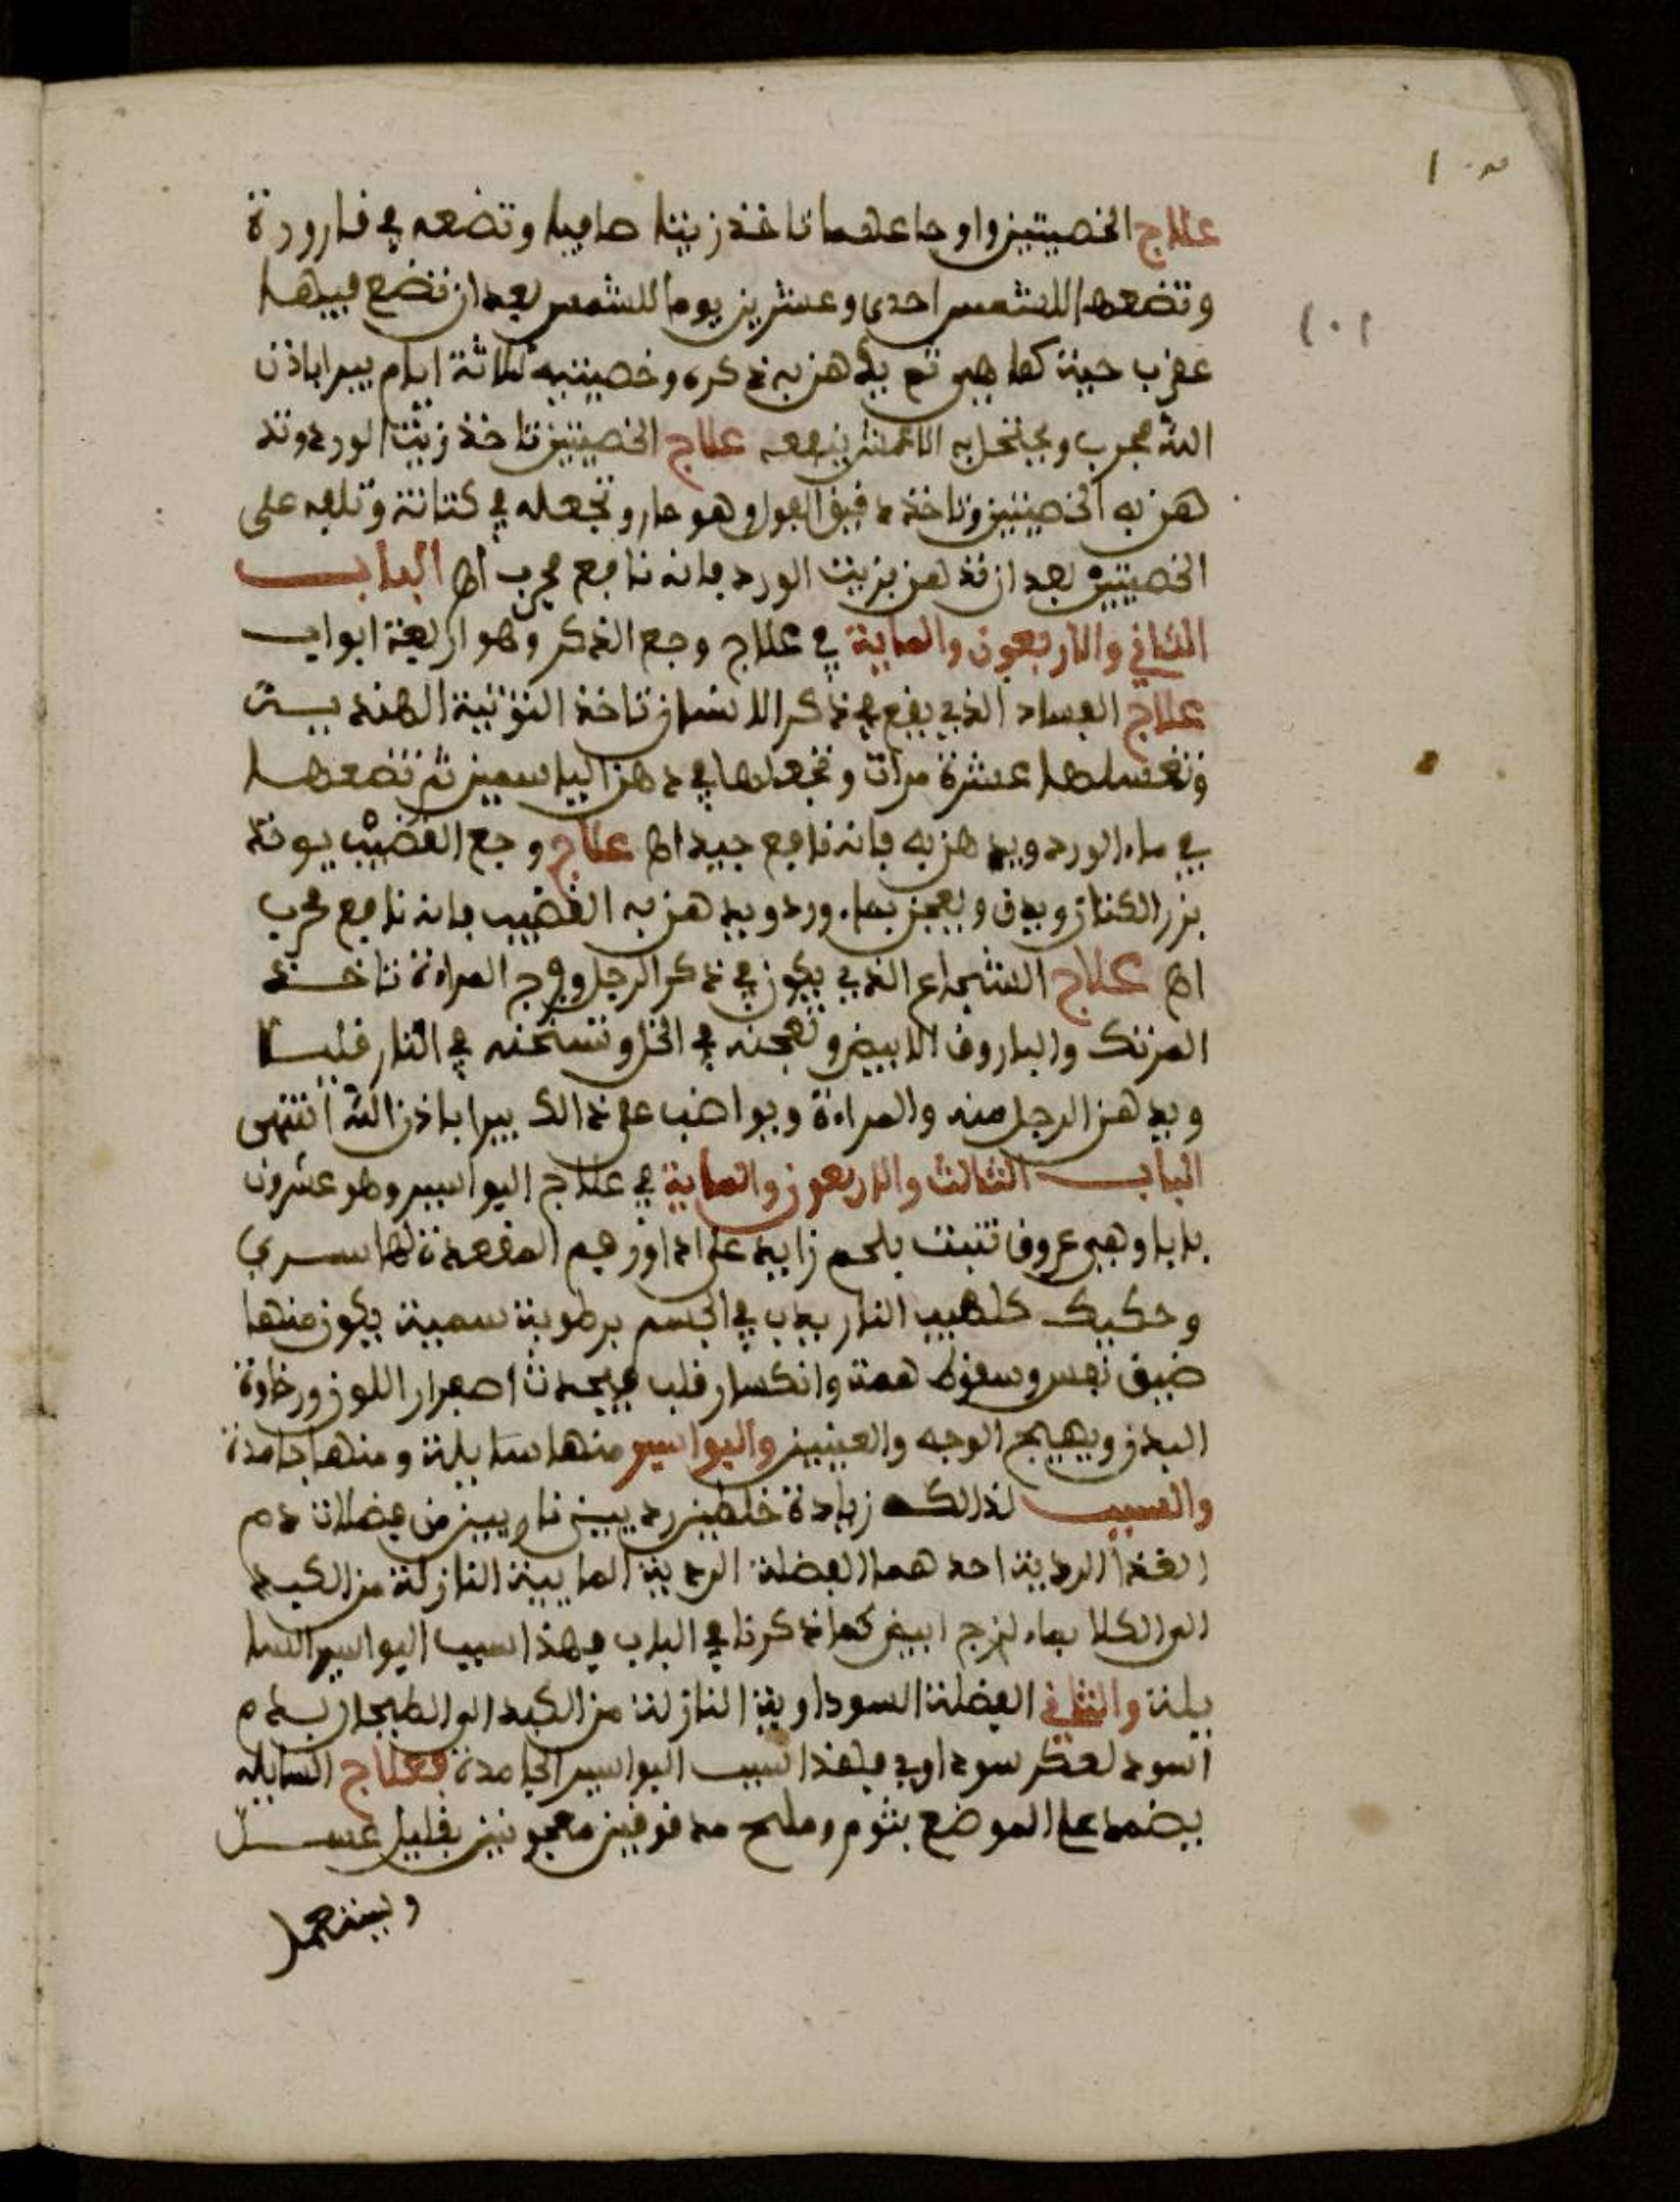 علاج الخصيتين واوجاعهما تاخذ زيتا صافيا وتضعه في قارورة
وتضعها للشمس احدى وعشرين يوما للشمس بعد ان تضع فيها
عقرب حية كما هي ثم يدهن به ذكره وخصيتيه ثلاثة ايام يبرا باذن
الله مجرب ويكتحل به الاعمش ينفعه علاج الخصيتين تاخذ زيت الورد وتد
هن به الخصيتين وتاخذ دقيق الفول وهو حار وتجعله في كتانة وتلفه على
الخصيتين بعد ان تدهن بزيت الورد فانه نافع مجرب اه الباب
الثاني والاربعون والماية في علاج وجع الذكر وهو اربعة ابواب
علاج الفساد الذي يقع في ذكر الانسان تاخذ التوتية الهندية
وتغسلها عشرة مرات وتجعلها في دهن الياسمين ثم تضعها
في ماء الورد ويدهن به فانه نافع جيد اه علاج وجع القضيب يوخذ
بزر الكتان ويدق ويعجن بماء ورد ويدهن به القضيب فانه نافع مجرب
اه علاج الذي يكون في ذكر الرجل وفرج المراءة تاخذ
المرتك والباروق الابيض وتعجنه في الخل وتسخنه في النار قليلا
ويدهن الرجل منه والمراءة ويواضب على ذالك يبرا باذن الله انتهى
الباب الثالث والاربعون والماية في علاج البواسير وهو عشرون
بابا وهي عروق تنبت بلحم زايد على فم المقعدة لها سري
وحكيك كلهيب النار يدب في الجسم برطوبة سمية يكون منها
ضيق نفس وسقوط همة وانكسار قلب فيحدث اصفرار اللون ورخاوة
البدن ويهيج الوجه والعينين والبواسير منها سايلة ومنها جامدة
والسبب لذالك زيادة خلطين رديين ناريين من فضلات دم
الغذا الردية احدهما الفضلة الردية المايية النازلة من الكبد
الى الكلا بماء لزج ابيض كما ذكرنا في الباب فهذا سبب البواسير السا
يلة والثاني الفضلة السوداوية النازلة من الكبد الى الطيحار بدم
اسود لعكر سوداوي فهذا سبب البواسير الجامدة فعلاج السايلة
يضمد على الموضع بثوم وملح مدقوقين معجونين بقليل عسل
ويستعمل
١٠١